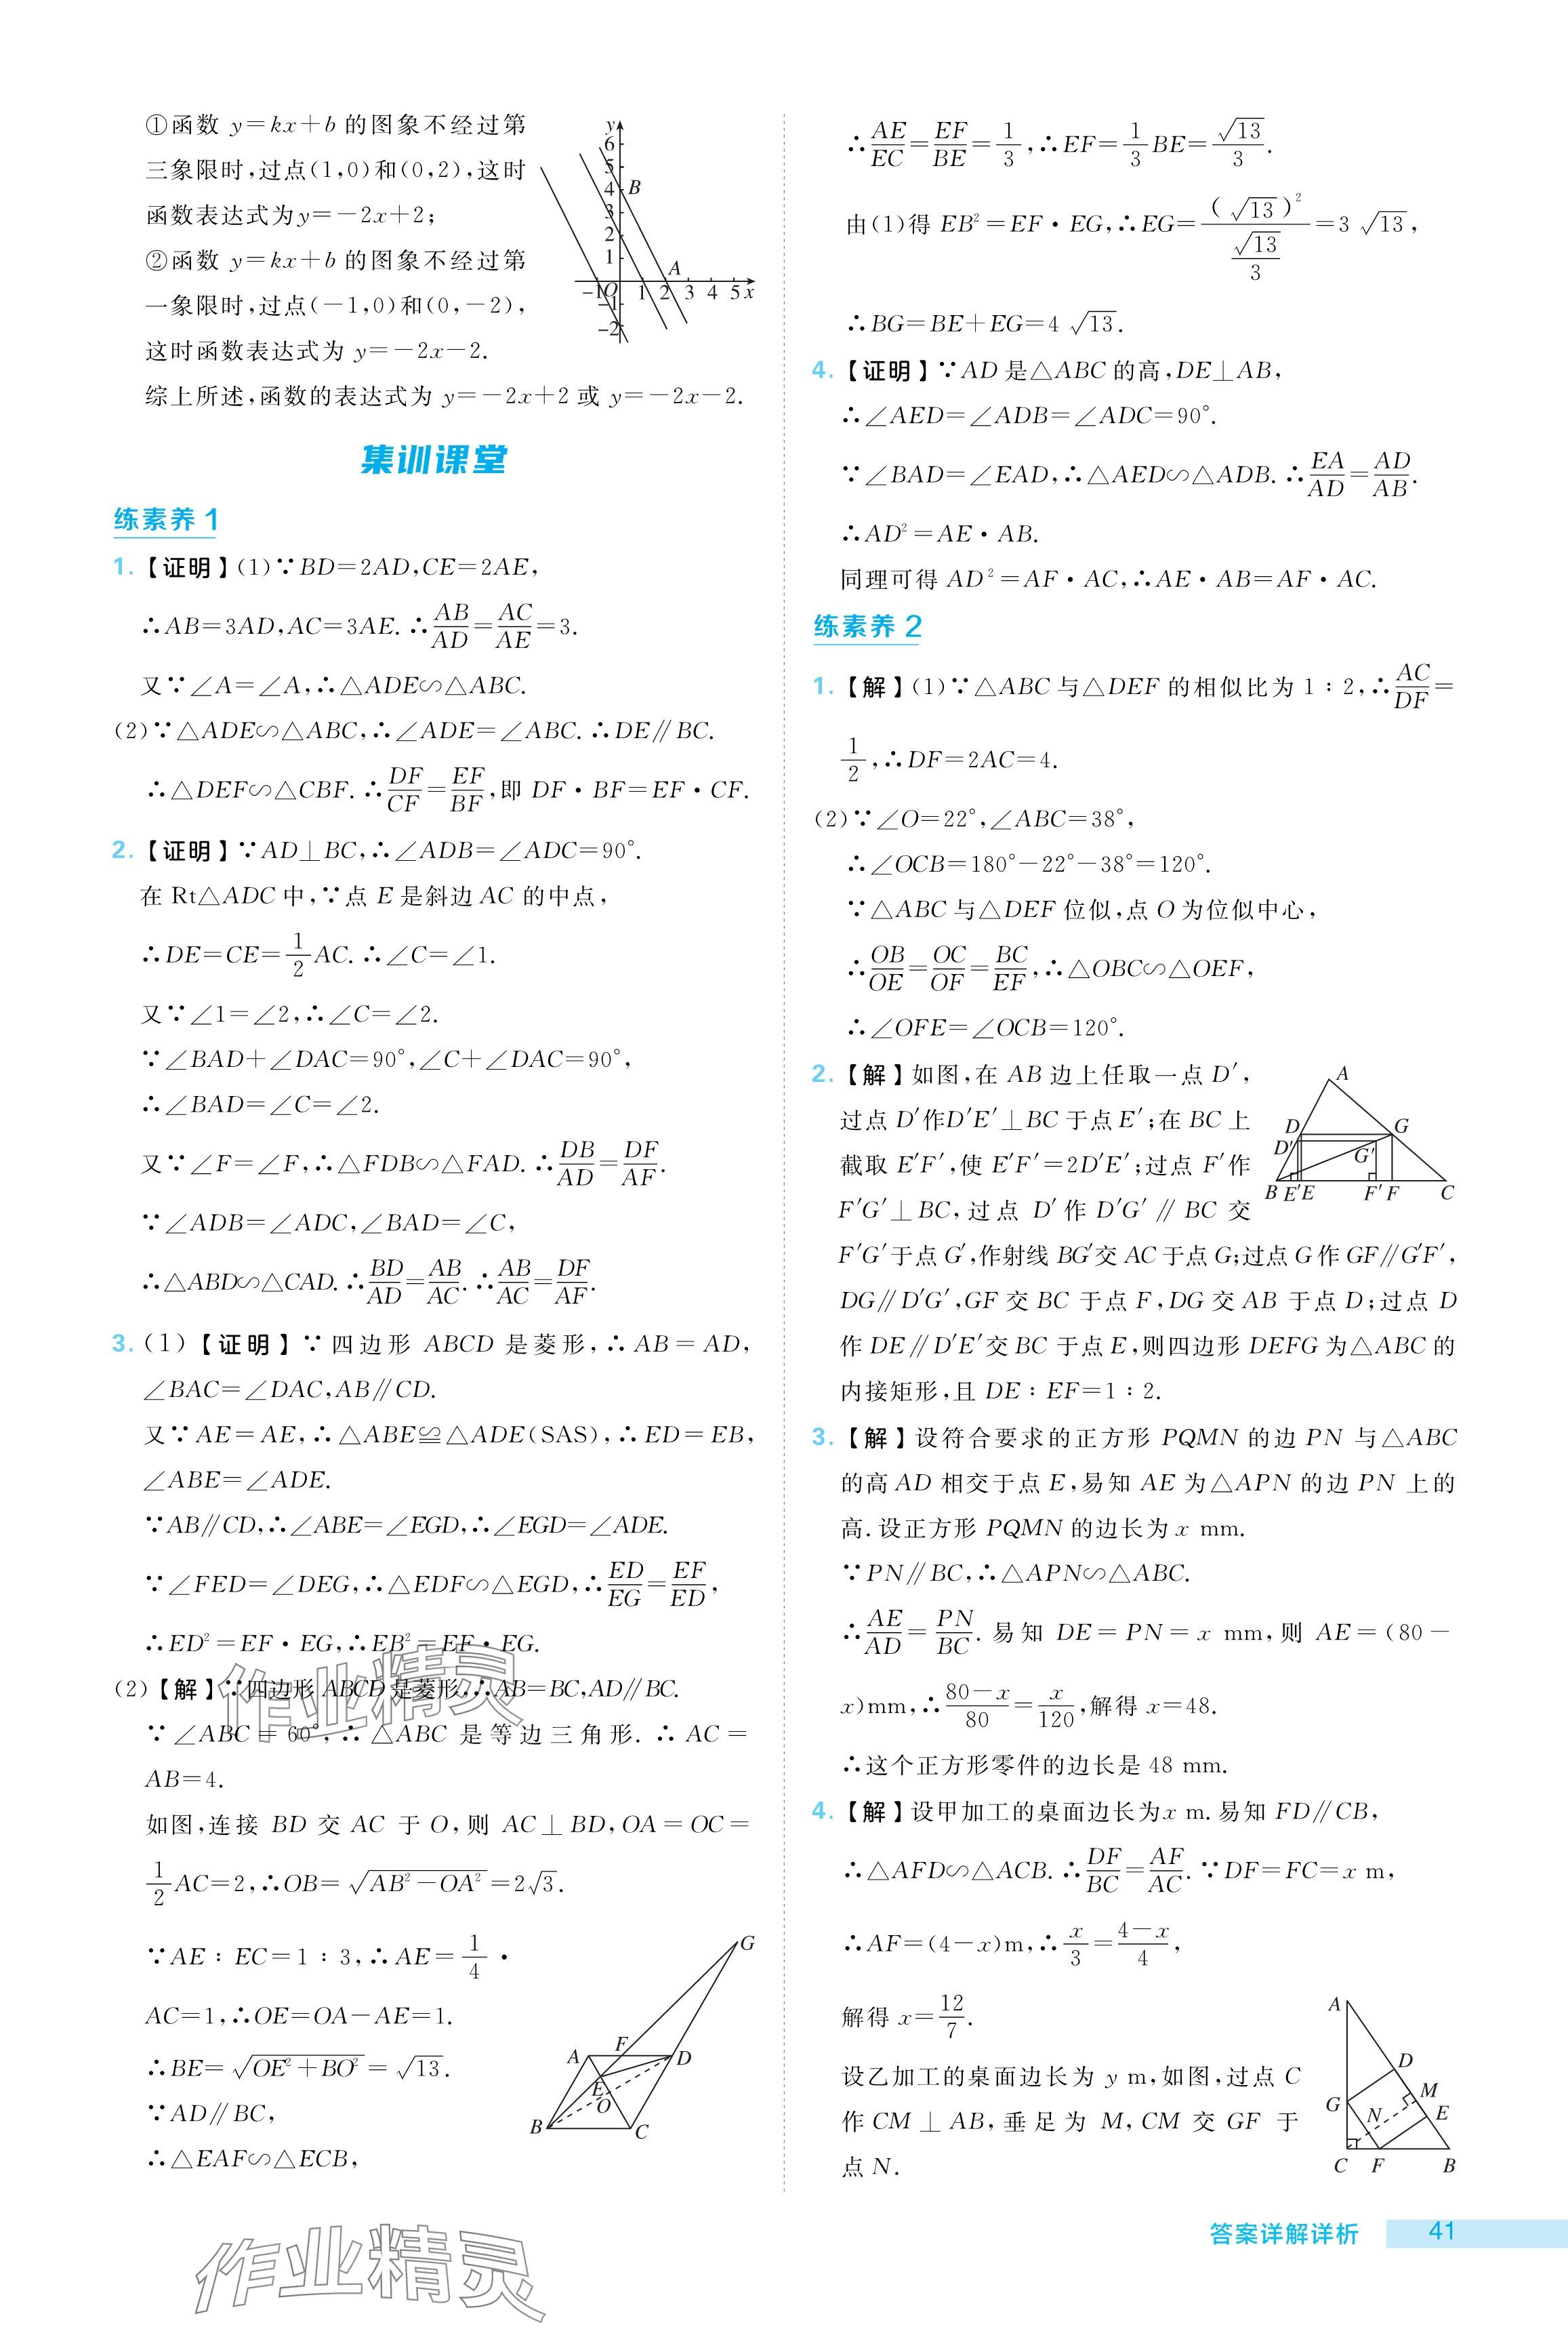 ①函数 y=kx+b 的图象不经过第
三象限时,过点(1,0)和(0,2),这时
函数表达式为y=-2x+2;
②函数 y=kx+b 的图象不经过第
一象限时,过点(-1,0)和(0,-2),
这时函数表达式为 y=-2x-2.
综上所述,函数的表达式为 y=-2x+2 或 y=-2x-2.
y
6
5
4 B
3
2
1 A
-1 O 1 2 3 4 5 x
-1
-2
集训课堂
练素养 1
1.【证明】(1)∵BD=2AD,CE=2AE,
∴AB=3AD,AC=3AE. ∴AB/AD=AC/AE=3.
又∵∠A=∠A,∴△ADE∽△ABC.
(2)∵△ADE∽△ABC,∴∠ADE=∠ABC. ∴DE∥BC.
∴△DEF∽△CBF. ∴DF/CF=EF/BF,即 DF·BF=EF·CF.
2.【证明】∵AD⊥BC,∴∠ADB=∠ADC=90°.
在 Rt△ADC 中,∵点 E 是斜边 AC 的中点,
∴DE=CE=1/2 AC. ∴∠C=∠1.
又∵∠1=∠2,∴∠C=∠2.
∵∠BAD+∠DAC=90°,∠C+∠DAC=90°,
∴∠BAD=∠C=∠2.
又∵∠F=∠F,∴△FDB∽△FAD. ∴DB/AD=DF/AF.
∵∠ADB=∠ADC,∠BAD=∠C,
∴△ABD∽△CAD. ∴BD/AD=AB/AC. ∴AB/AC=DF/AF.
3.(1)【证明】∵四边形 ABCD 是菱形,∴AB=AD,
∠BAC=∠DAC,AB∥CD.
又∵AE=AE,∴△ABE≌△ADE(SAS),∴ED=EB,
∠ABE=∠ADE.
∵AB∥CD,∴∠ABE=∠EGD,∴∠EGD=∠ADE.
∵∠FED=∠DEG,∴△EDF∽△EGD,∴ED/EG=EF/ED,
∴ED²=EF·EG,∴EB²=EF·EG.
(2)【解】∵四边形 ABCD 是菱形,∴AB=BC,AD∥BC.
∵∠ABC=60°,∴△ABC 是等边三角形. ∴AC=
AB=4.
如图,连接 BD 交 AC 于 O,则 AC⊥BD,OA=OC=
1/2 AC=2,∴OB=√(AB²-OA²)=2√3.
∵AE∶EC=1∶3,∴AE=1/4·
AC=1,∴OE=OA-AE=1.
∴BE=√(OE²+BO²)=√13.
∵AD∥BC,
∴△EAF∽△ECB,
G
A F D
E
O
B C
∴AE/EC=EF/BE=1/3,∴EF=1/3 BE=√13/3.
由(1)得 EB²=EF·EG,∴EG=(√13)²/(√13/3)=3√13,
∴BG=BE+EG=4√13.
4.【证明】∵AD 是△ABC 的高,DE⊥AB,
∴∠AED=∠ADB=∠ADC=90°.
∵∠BAD=∠EAD,∴△AED∽△ADB. ∴EA/AD=AD/AB.
∴AD²=AE·AB.
同理可得 AD²=AF·AC,∴AE·AB=AF·AC.
练素养 2
1.【解】(1)∵△ABC 与△DEF 的相似比为 1∶2,∴AC/DF=
1/2,∴DF=2AC=4.
(2)∵∠O=22°,∠ABC=38°,
∴∠OCB=180°-22°-38°=120°.
∵△ABC 与△DEF 位似,点 O 为位似中心,
∴OB/OE=OC/OF=BC/EF,∴△OBC∽△OEF,
∴∠OFE=∠OCB=120°.
2.【解】如图,在 AB 边上任取一点 D′,
过点 D′作D′E′⊥BC 于点 E′;在 BC 上
截取 E′F′,使 E′F′=2D′E′;过点 F′作
F′G′⊥BC,过点 D′作 D′G′∥BC 交
F′G′于点 G′,作射线 BG′交 AC 于点 G;过点 G 作 GF∥G′F′,
DG∥D′G′,GF 交 BC 于点 F,DG 交 AB 于点 D;过点 D
作 DE∥D′E′交 BC 于点 E,则四边形 DEFG 为△ABC 的
内接矩形,且 DE∶EF=1∶2.
A
D G
D′ G′
B E′ E F′ F C
3.【解】设符合要求的正方形 PQMN 的边 PN 与△ABC
的高 AD 相交于点 E,易知 AE 为△APN 的边 PN 上的
高.设正方形 PQMN 的边长为 x mm.
∵PN∥BC,∴△APN∽△ABC.
∴AE/AD=PN/BC. 易知 DE=PN=x mm,则 AE=(80-
x)mm,∴(80-x)/80=x/120,解得 x=48.
∴这个正方形零件的边长是 48 mm.
4.【解】设甲加工的桌面边长为x m.易知 FD∥CB,
∴△AFD∽△ACB. ∴DF/BC=AF/AC. ∵DF=FC=x m,
∴AF=(4-x)m,∴x/3=(4-x)/4,
解得 x=12/7.
设乙加工的桌面边长为 y m,如图,过点 C
作 CM⊥AB,垂足为 M,CM 交 GF 于
点 N.
A
D
M
G N E
C F B
作业精灵
作业精灵
答案详解详析 41